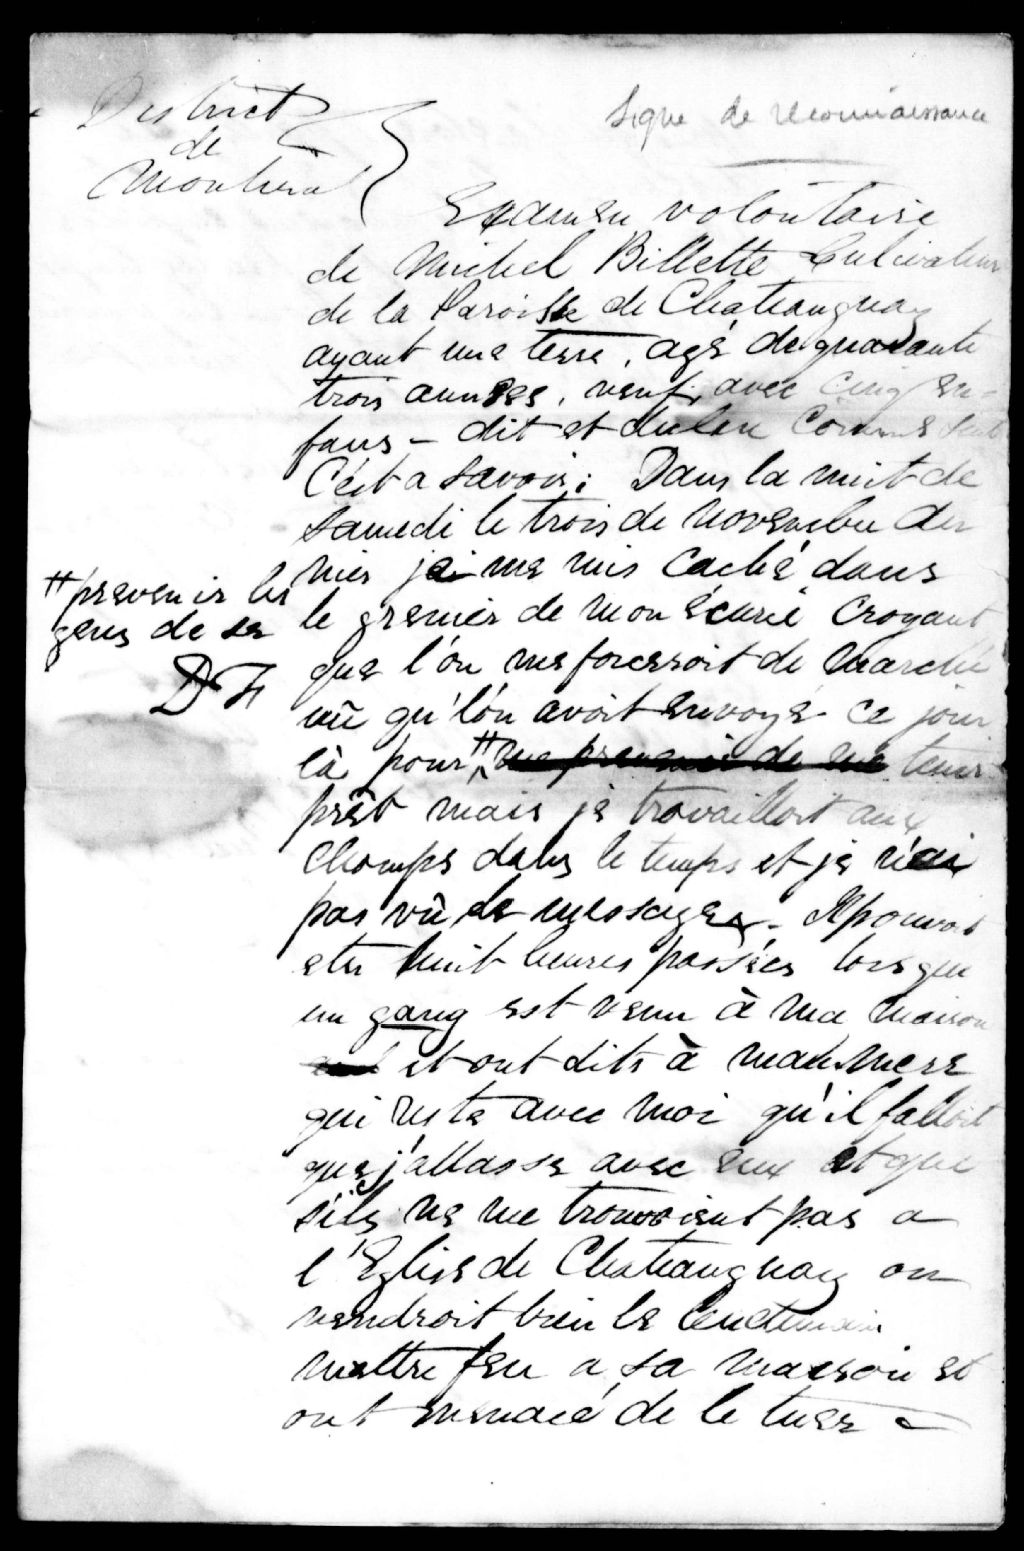 District
de
Montreal
Signe de reconnaissance
Examen volontaire
de Michel Billette Cultivateur
de la Paroisse de Chateauguay
ayant une terre, agé de quarante
trois années, veuf, avec cinq en-
fans – dit et declare comme suit
C'ést a savoir: Dans la nuit de
Samedi le trois de Novembre der
nier je me mis caché dans
le grenier de mon écurie croyant
que l'ón me forceroit de marché
vû qu'l'ón avoit envoyé ce jour
là pour # me prevenir de me tenir
# prevenir les
gens de se
D F
prêt mais je travailloit aux
champs dans le temps et je n'ai
pas vû le messager. Il pouvoit
etre huit heures passées lorsque
un gang est venu à ma maison
et ont dits à ma mere
qui reste avec moi qu'il falloit
que j'allasse avec eux et que
s'ils ne me trouvoient pas a
l'Eglise de Chateauguay on
vendroit bien le lendemain
mettre feu a sa maison et
ont menacé de le tuer –